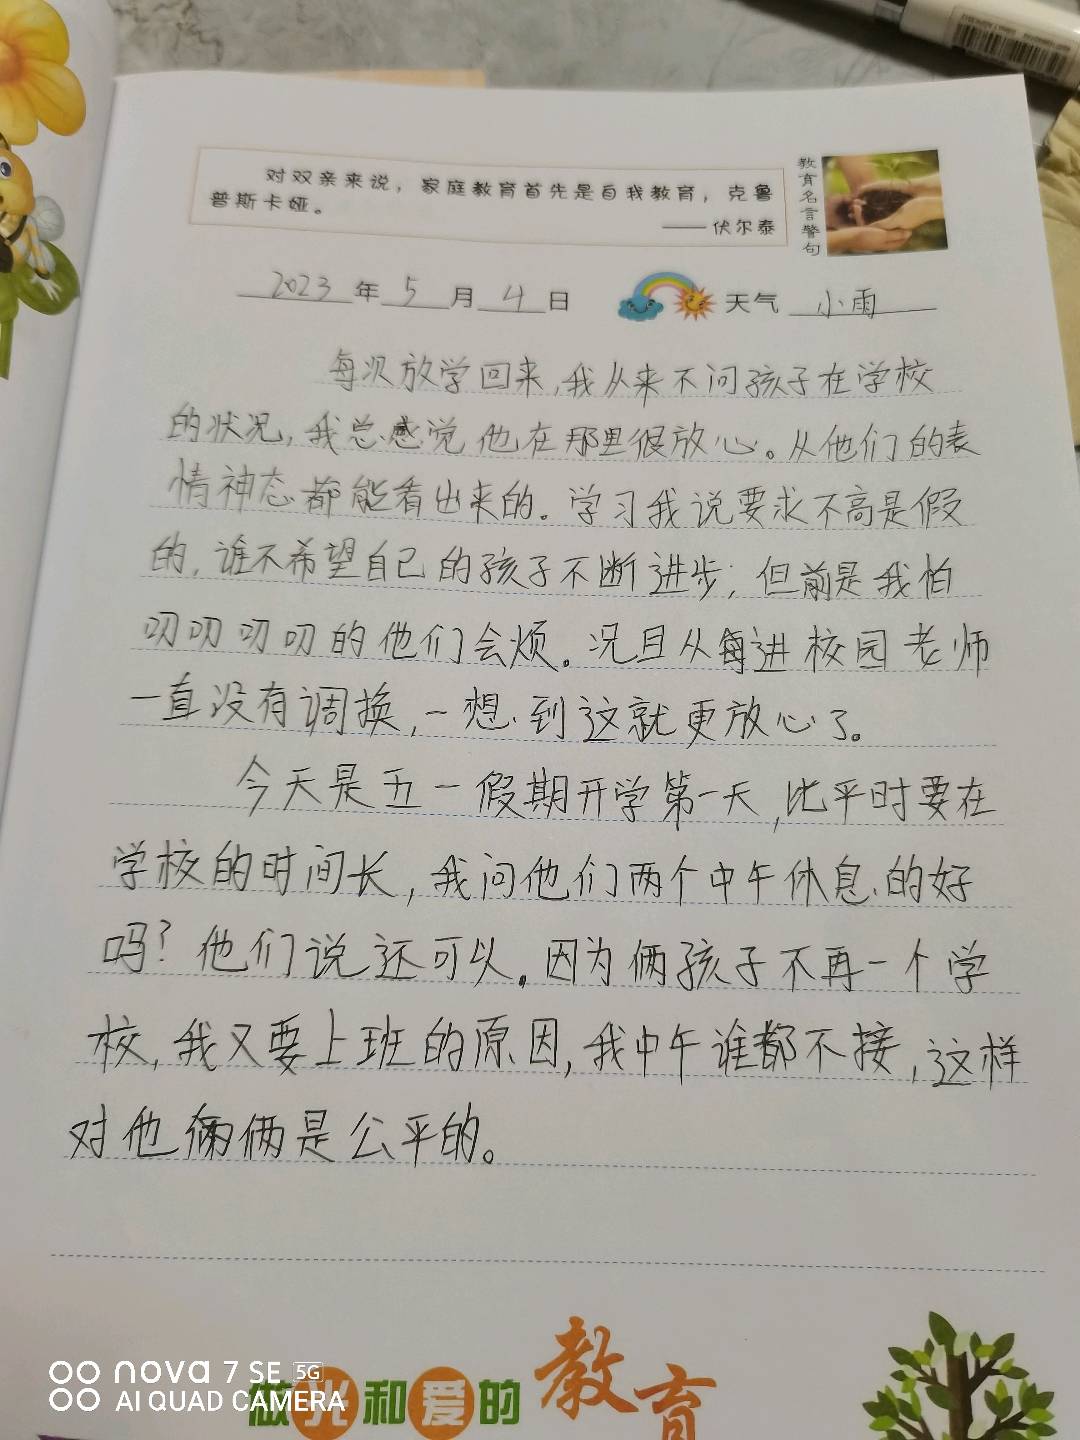 对双亲来说，家庭教育首先是自我教育，克鲁
普斯卡娅。
——伏尔泰
教育名言警句
2023年5月4日 天气 小雨
每次放学回来，我从来不问孩子在学校
的状况，我总感觉他在那里很放心。从他们的表
情神态都能看出来的。学习我说要求不高是假
的，谁不希望自己的孩子不断进步；但前是我怕
叨叨叨叨的他们会烦。况且从每进校园老师
一直没有调换，一想到这就更放心了。
今天是五一假期开学第一天，比平时要在
学校的时间长，我问他们两个中午休息的好
吗？他们说还可以。因为俩孩子不再一个学
校，我又要上班的原因，我中午谁都不接，这样
对他俩是公平的。
做光和爱的教育
nova 7 SE 5G
AI QUAD CAMERA